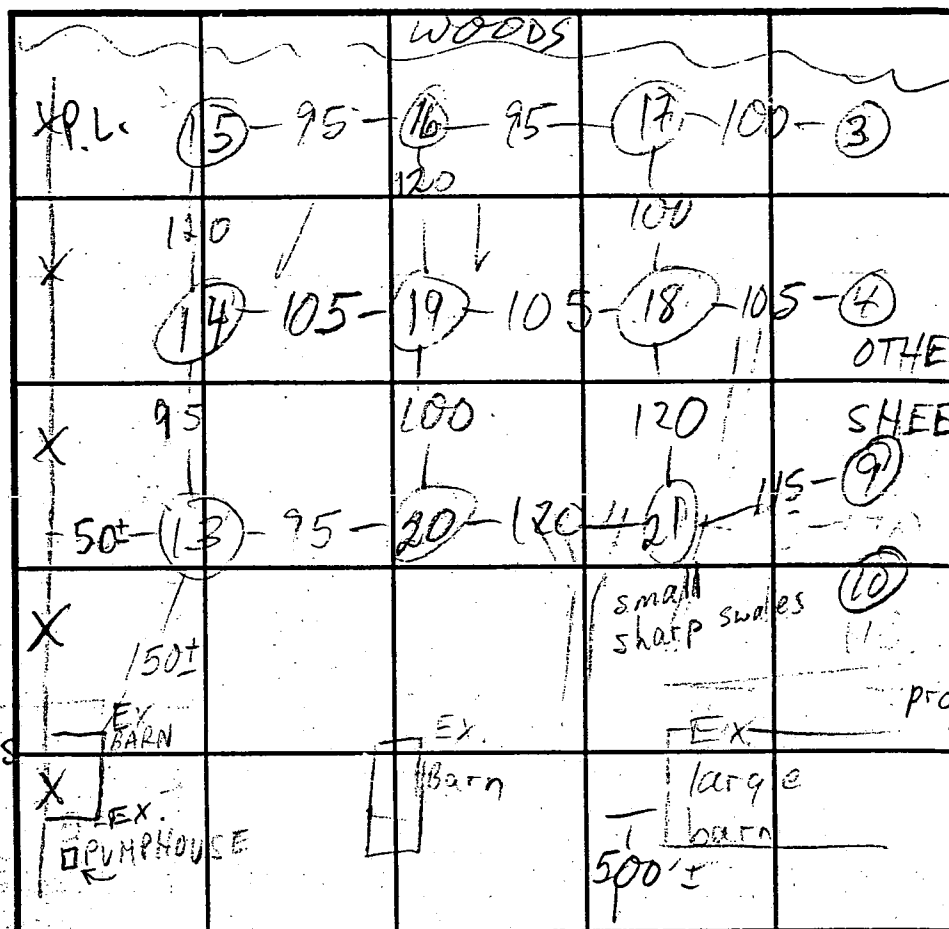 WOODS
X P.L. 15 - 95 - 16 - 95 - 17 - 100 - 3
120
120 100
X 14 - 105 - 19 - 105 - 18 - 105 - 4
OTHE
95 100 120 SHEE
X 9
50± - 13 - 95 - 20 - 120 - 21 - 115 -
small 10
X sharp swales
150±
pro
EX BARN EX. EX.
X Barn large
EX. barn
PUMPHOUSE 500'±